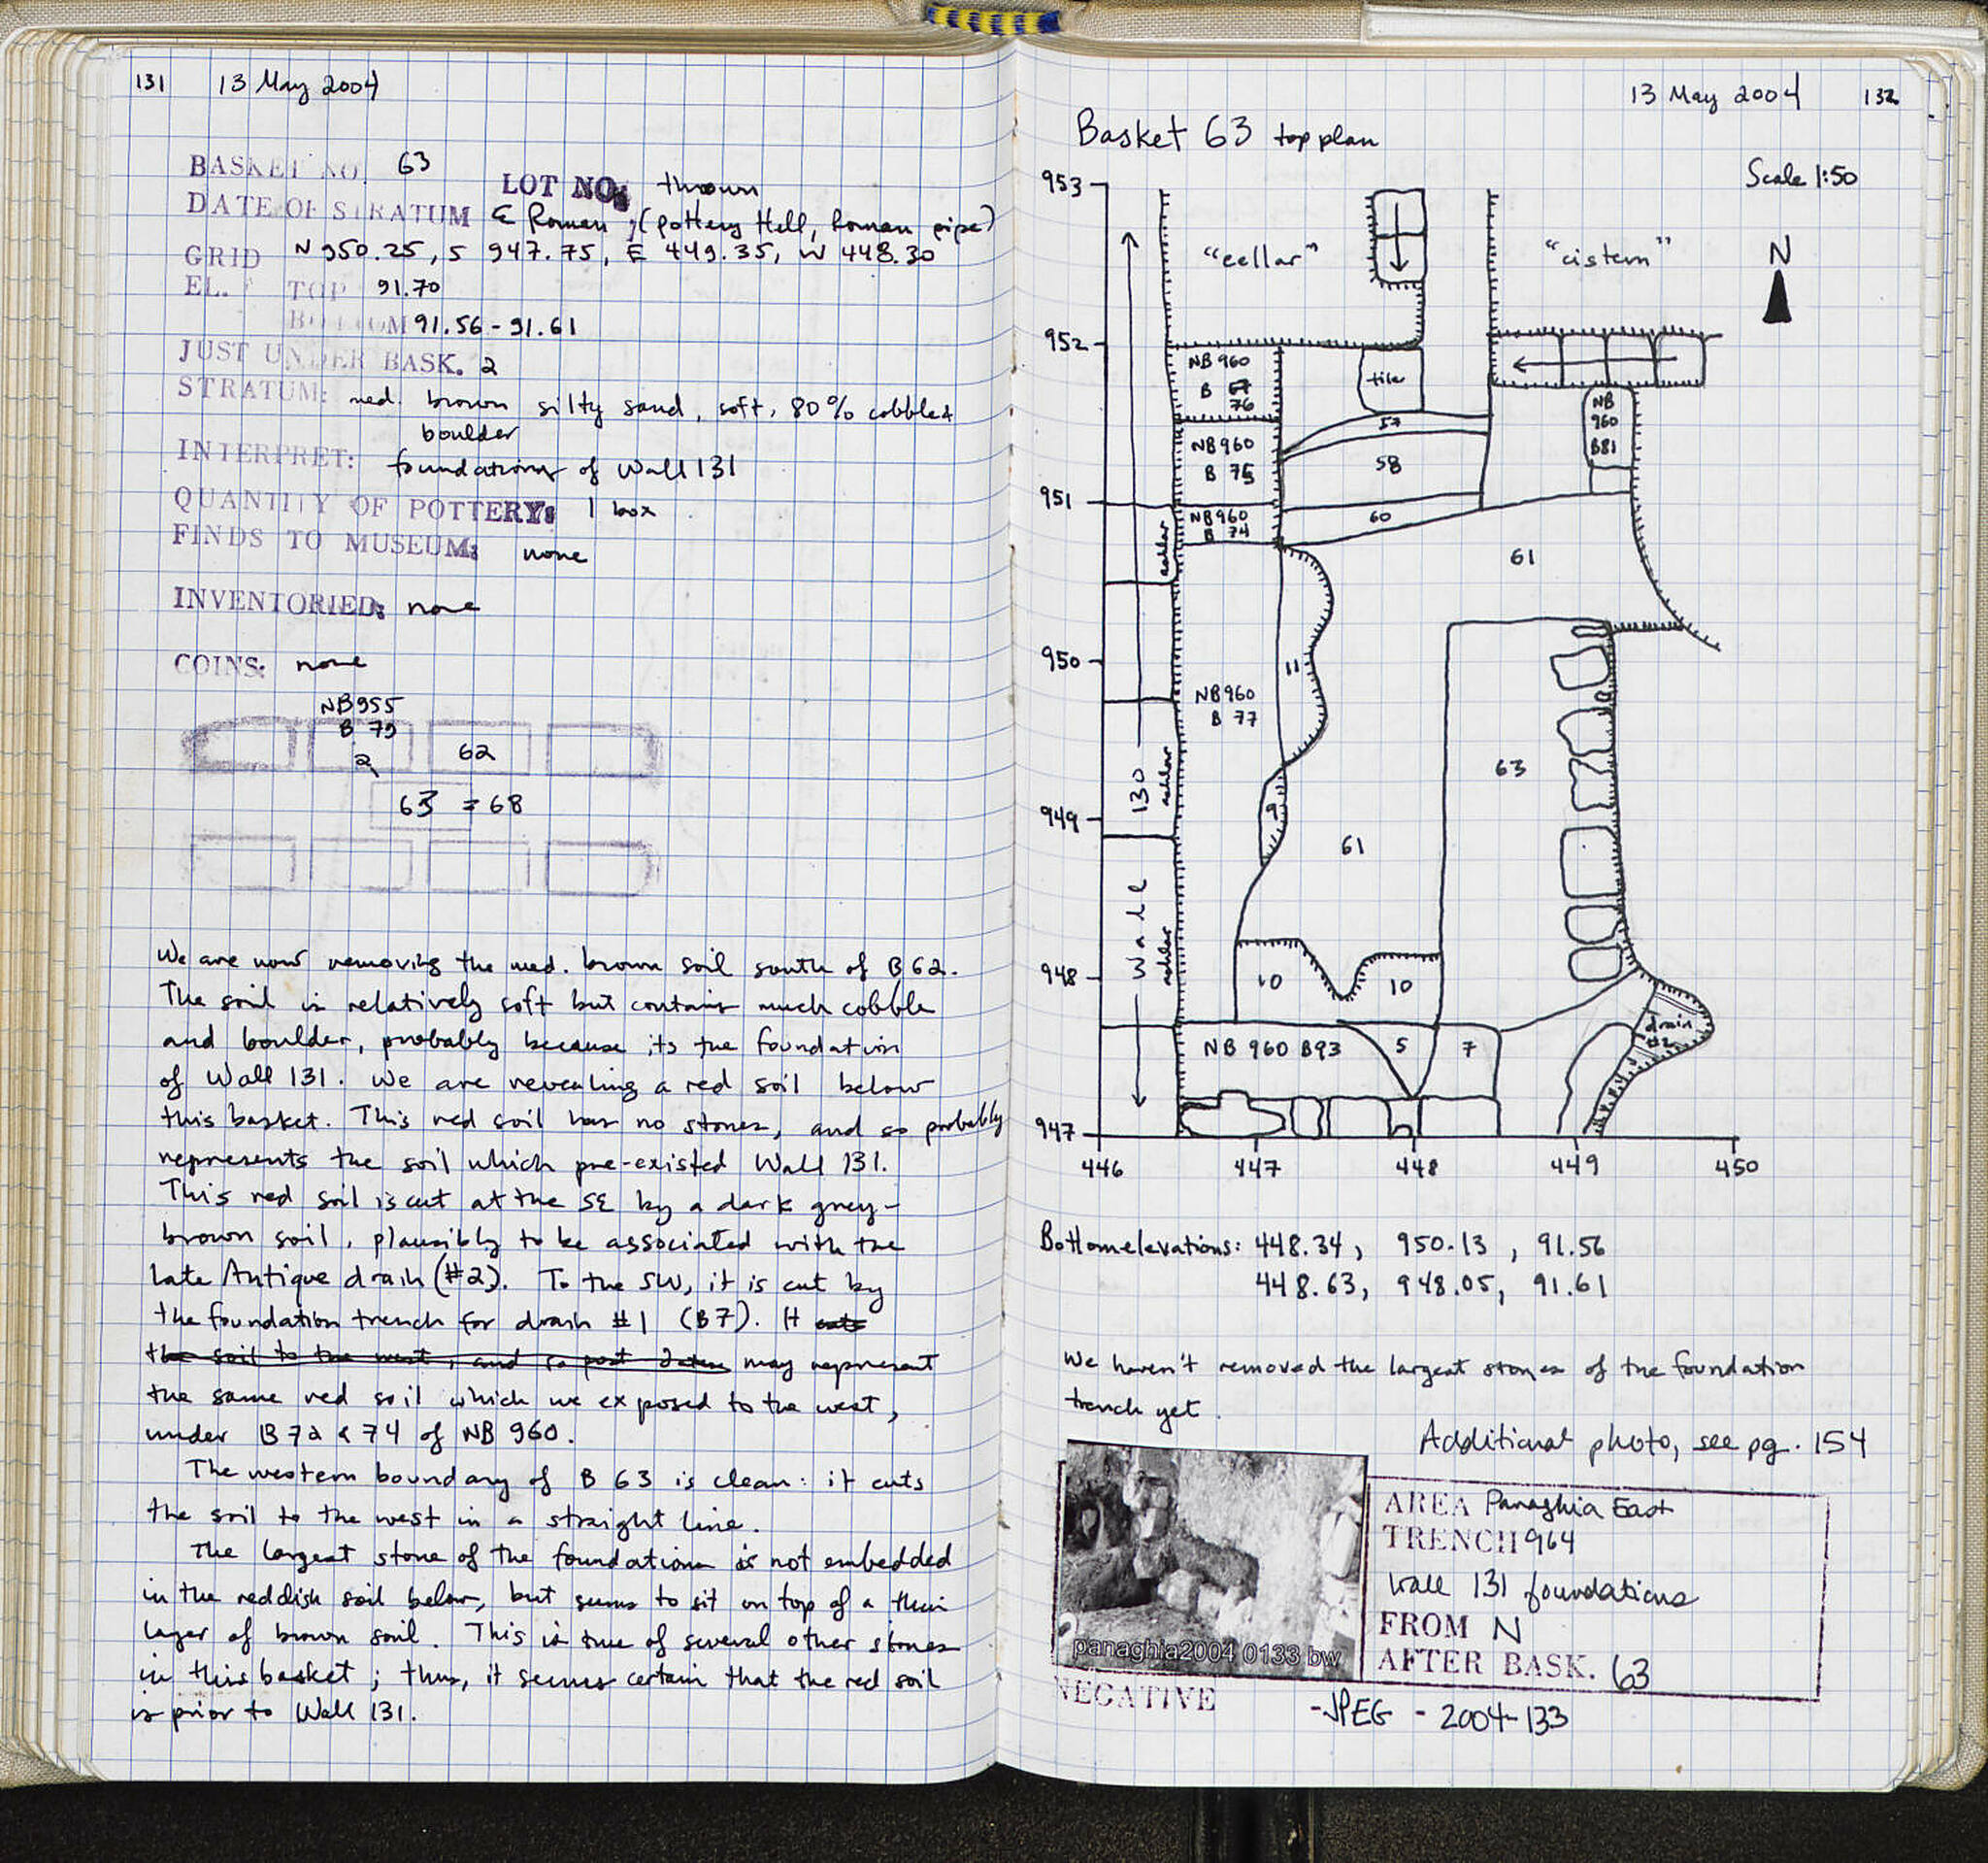 131 13 May 2004
BASKET NO. 63
LOT NO: thrown
DATE OF STRATUM E Roman; (pottery Hell, Roman pipe)
GRID N 950.25, S 947.75, E 449.35, W 448.30
EL. TOP 91.70
BOTTOM 91.56 - 91.61
JUST UNDER BASK. 2
STRATUM: med. brown silty sand, soft, 80% cobble &
boulder
INTERPRET: foundations of Wall 131
QUANTITY OF POTTERY: 1 box
FINDS TO MUSEUM: none
INVENTORIED: none
COINS: none
NB955
B 79
2 62
63 = 68
We are now removing the med. brown soil south of B62.
The soil is relatively soft but contains much cobble
and boulder, probably because its the foundation
of Wall 131. We are revealing a red soil below
this basket. This red soil has no stones, and so probably
represents the soil which pre-existed Wall 131.
This red soil is cut at the SE by a dark grey-
brown soil, plausibly to be associated with the
late Antique drain (#2). To the SW, it is cut by
the foundation trench for drain #1 (B7). It cuts
the soil to the west, and so post dates may represent
the same red soil which we exposed to the west,
under B 72 & 74 of NB 960.
The western boundary of B 63 is clean: it cuts
the soil to the west in a straight line.
The largest stone of the foundation is not embedded
in the reddish soil below, but seems to sit on top of a thin
layer of brown soil. This is true of several other stones
in this basket; thus, it seems certain that the red soil
is prior to Wall 131.
13 May 2004 132
Basket 63 top plan
Scale 1:50
953
"cellar"
"cistern"
N
952
NB 960
B 67
76
tile
NB
960
B81
57
NB 960
B 75
58
951
NB 960
B 74
60
ashlar
61
950
11
NB 960
B 77
63
130
ashlar
949
9
61
Wall
ashlar
948
10
10
drain
#2
NB 960 B93
5
7
947
446 447 448 449 450
Bottom elevations: 448.34, 950.13, 91.56
448.63, 948.05, 91.61
We haven't removed the largest stones of the foundation
trench yet.
Additional photo, see pg. 154
AREA Panaghia East
TRENCH 964
Wall 131 foundations
FROM N
AFTER BASK. 63
panaghia2004 0133 bw
NEGATIVE
-JPEG - 2004-133